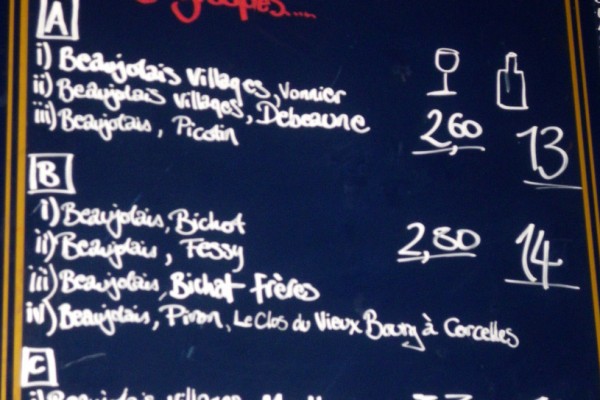 A
i) Beaujolais Villages, Vonnier
ii) Beaujolais Villages, Debeaune
iii) Beaujolais, Picotin
2,60
13
B
i) Beaujolais, Bichot
ii) Beaujolais, Fessy
2,80
14
iii) Beaujolais, Bichat Frères
iv) Beaujolais, Piron, Le Clos du Vieux Bourg à Corcelles
C